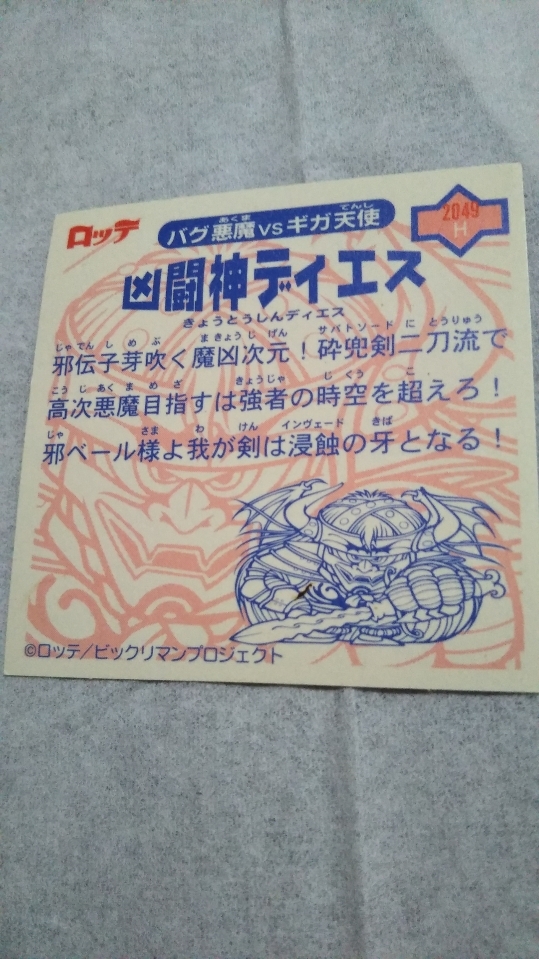 ロッテ
バグ悪魔vsギガ天使
あくま てんし
2049
H
凶闘神ディエス
きょうとうしんディエス
じゃでんしめぶ まきょうじげん サバトソード に とうりゅう
邪伝子芽吹く魔凶次元！砕兜剣二刀流で
こうじあくまめざ きょうじゃ じくう こ
高次悪魔目指すは強者の時空を超えろ！
じゃ さま わ けん インヴェード きば
邪ベール様よ我が剣は浸蝕の牙となる！
©ロッテ／ビックリマンプロジェクト